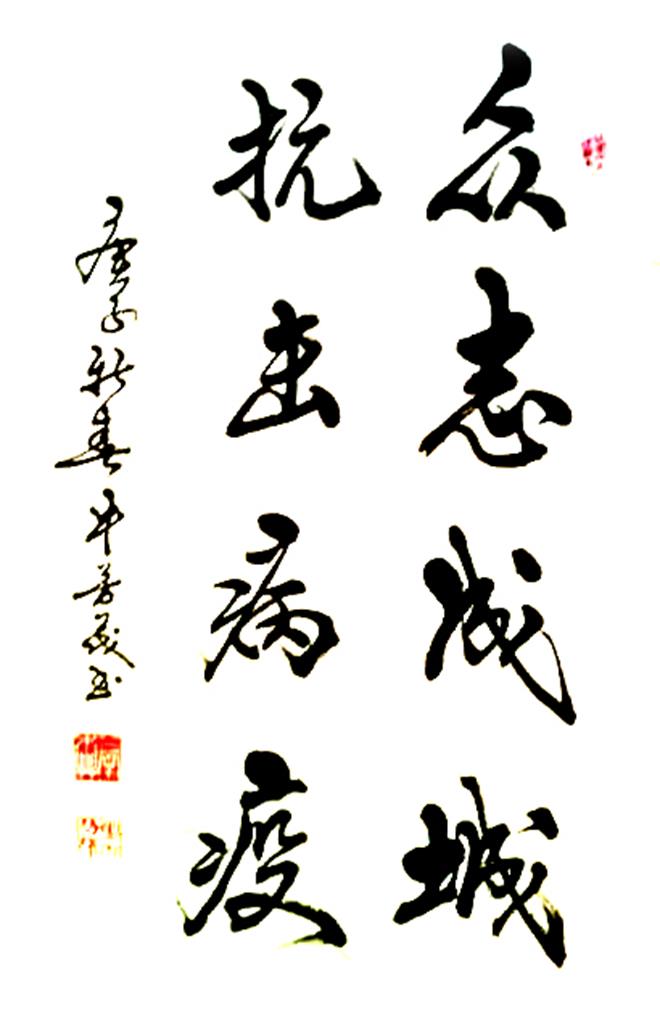 众志成城
抗击病疫
庚子新春